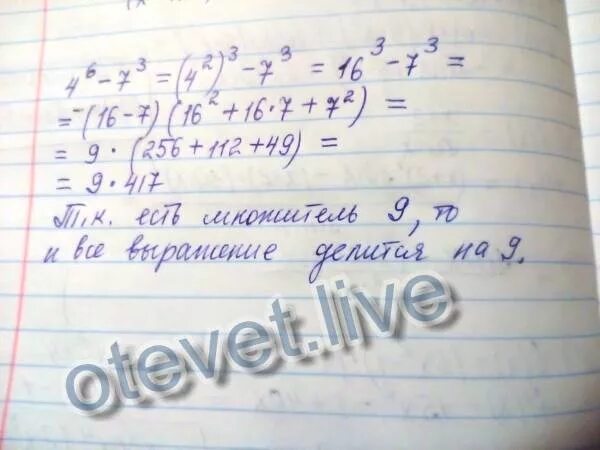 4⁶ - 7³ = (4²)³ - 7³ = 16³ - 7³ =
= (16 - 7) (16² + 16·7 + 7²) =
= 9 · (256 + 112 + 49) =
= 9 · 417
Т.к. есть множитель 9, то
и все выражение делится на 9.
otevet.live